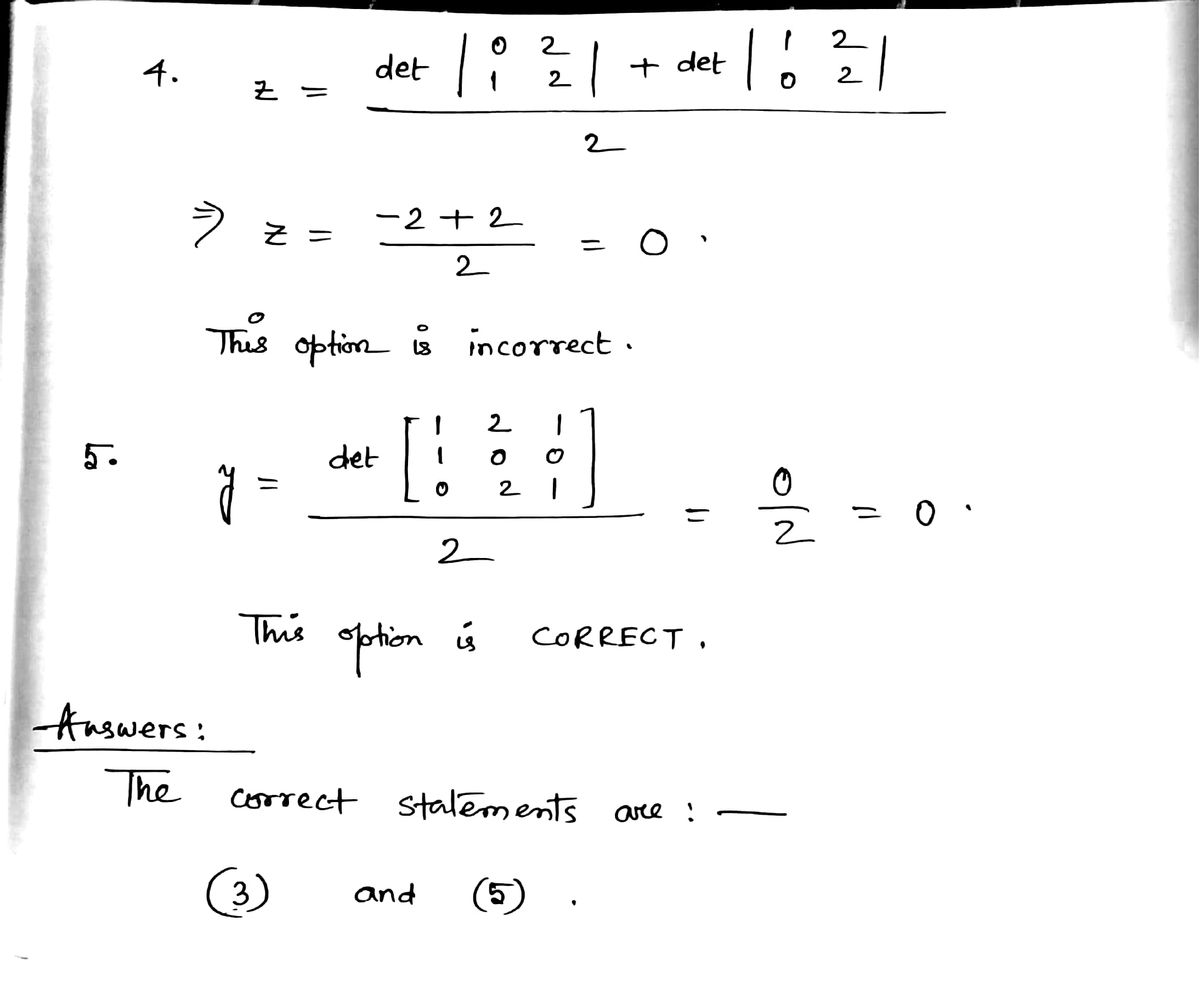 4. z = det | 0 2 | + det | 1 2 |
| 1 2 | | 0 2 |
2
⇒ z = -2 + 2 / 2 = 0 .
This option is incorrect .
5. y = det [ 1 2 1 ]
[ 1 0 0 ]
[ 0 2 1 ]
2
= 0 / 2 = 0 .
This option is CORRECT .
Answers :
The correct statements are : —
(3) and (5) .